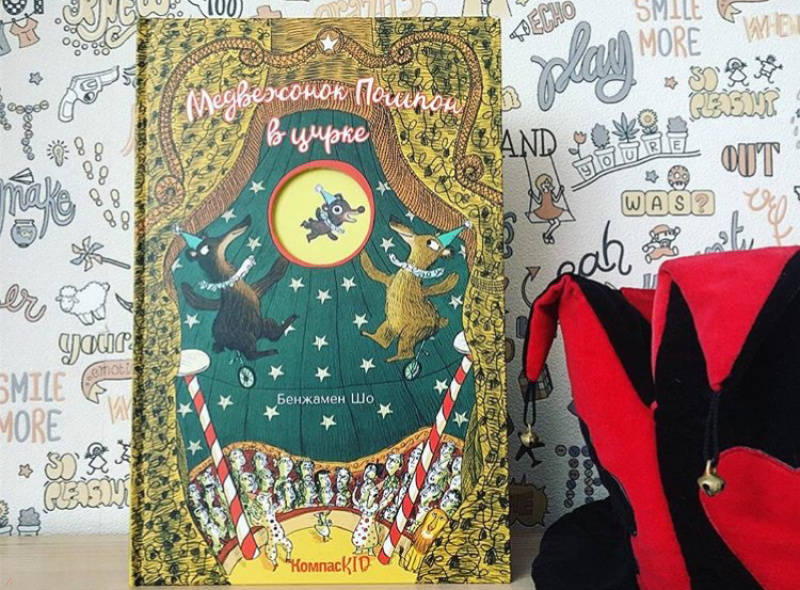 100
ECHO
SMILE
MORE
WHEN
play
SO
PLEASANT
Медвежонок Помпон
в цирке
AND
YOURE
OUT
make
WAS?
yeah
your
Бенжамен Шо
SMILE
MORE
SO
PLEASANT
КомпасKID